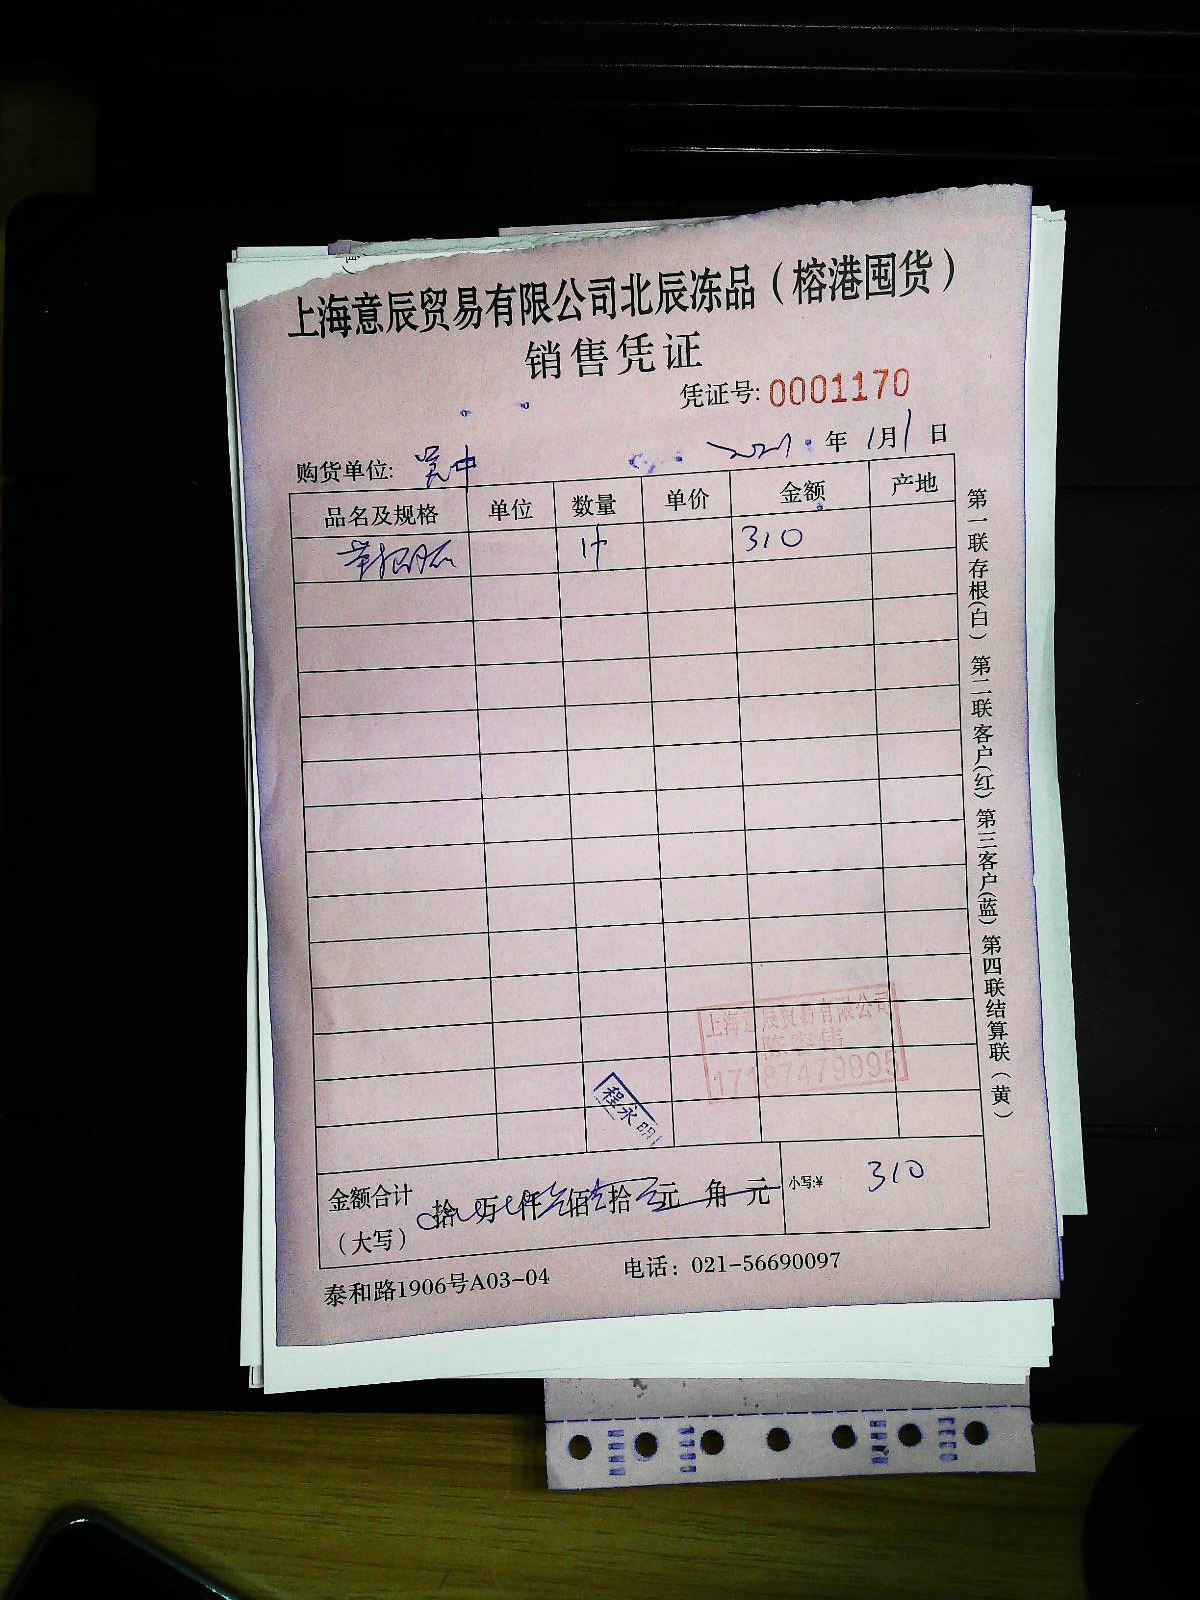 上海意辰贸易有限公司北辰冻品（榕港囤货）
销售凭证
凭证号: 0001170
购货单位: 吴中 2021 年 1月1日
品名及规格 单位 数量 单价 金额 产地
1件 310
上海意辰贸易有限公司
17187479995
程永明
金额合计（大写） 拾 万 仟 佰 拾 元 角 元 小写:¥ 310
泰和路1906号A03-04 电话：021-56690097
第一联存根(白) 第二联客户(红) 第三客户(蓝) 第四联结算联（黄）